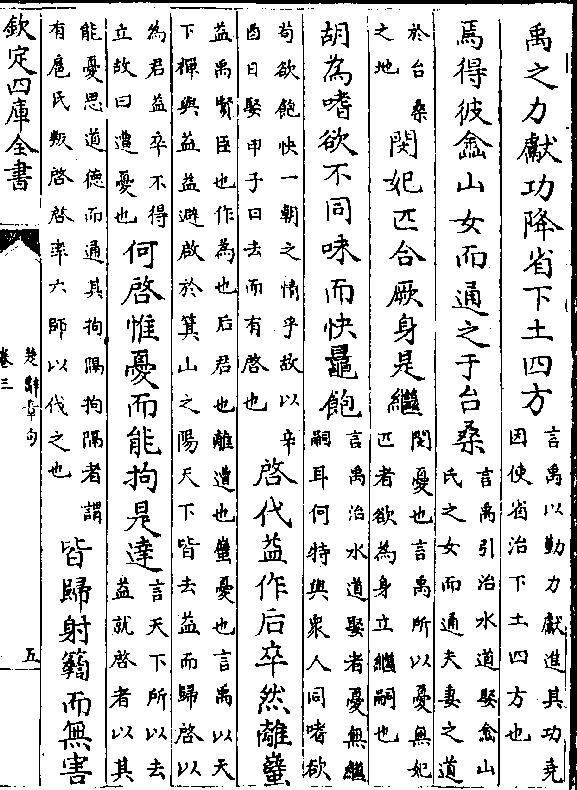 禹之力獻功降省下土四方言禹以勤力獻進其功堯
因使省治下土四方也
焉得彼嵞山女而通之于台桑言禹引治水道娶嵞山
氏之女而通夫妻之道
於台桑
之地
閔妃匹合厥身是繼閔憂也言禹所以憂無妃
匹者欲為身立繼嗣也
胡為嗜欲不同味而快鼂飽言禹治水道娶者憂無繼
嗣耳何特與衆人同嗜欲
苟欲飽快一朝之情乎故以辛
酉日娶甲子日去而有啓也
啓代益作后卒然離蠥
益禹賢臣也作為也后君也離遭也蠥憂也言禹以天
下禪與益益避啟於箕山之陽天下皆去益而歸啓以
為君益卒不得
立故曰遭憂也
何啓惟憂而能拘是達言天下所以去
益就啓者以其
能憂思道德而通其拘隔拘隔者謂
有扈氏叛啓啓率六師以伐之也
皆歸射䪻而無害
欽定四庫全書
楚辭章句
卷三
五